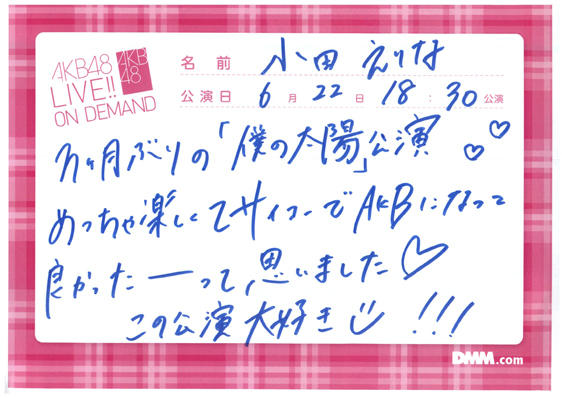 AKB48
LIVE!!
ON DEMAND
AKB
48
名前 小田 えりな
公演日 6月22日 18:30公演
ヶ月ぶりの「僕の太陽」公演♡♡
めっちゃ楽しくてサイコーでAKBになって
良かったーーって、思いました♡
この公演大好き!!!
DMM.com